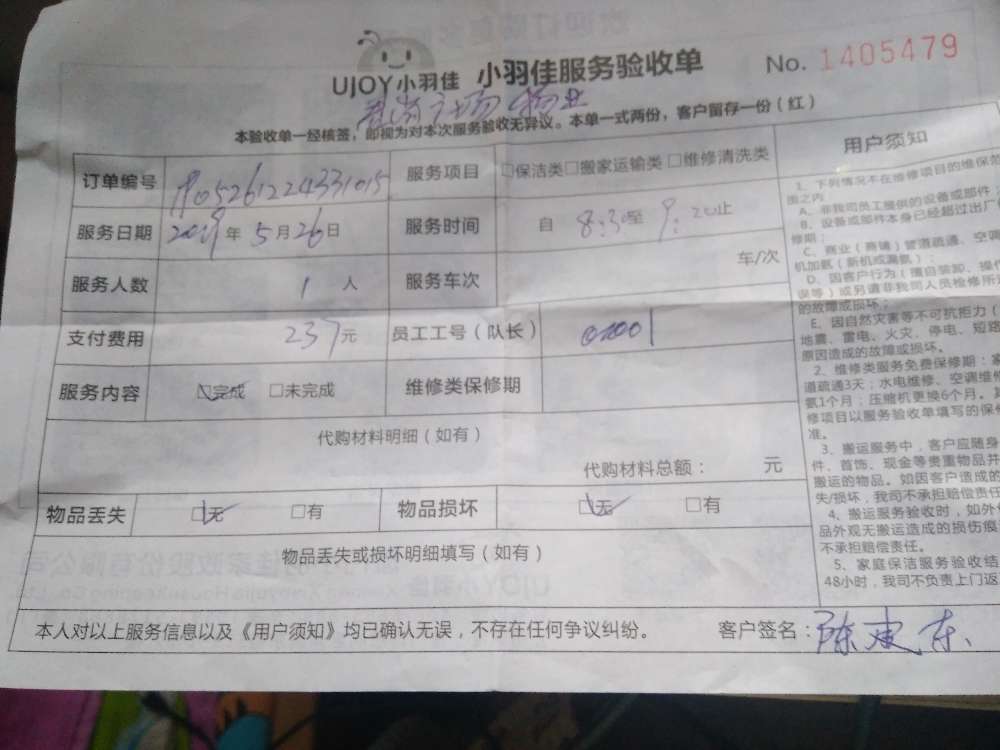 UJOY小羽佳 小羽佳服务验收单 No. 1405479
本验收单一经核签，即视为对本次服务验收无异议。本单一式两份，客户留存一份（红）
订单编号
服务项目 □保洁类□搬家运输类□维修清洗类
服务日期 2019年5月26日
服务时间 自 8:30至 9:20止
服务人数 1 人
服务车次 车/次
支付费用 237元
员工工号（队长） 02001
服务内容 □完成 □未完成
维修类保修期
代购材料明细（如有）
代购材料总额： 元
物品丢失 □无 □有
物品损坏 □无 □有
物品丢失或损坏明细填写（如有）
本人对以上服务信息以及《用户须知》均已确认无误，不存在任何争议纠纷。
客户签名：陈建东
用户须知
1、下列情况不在维修项目的维保范
围之内
A、非我司员工提供的设备或部件
B、设备或部件本身已经超过出厂
修期；
C、商业（商铺）管道疏通、空调
机加氨（新机或漏氨）；
D、因客户行为（擅自装卸、操作
误等）或另请非我司人员检修所
的故障或损坏；
E、因自然灾害等不可抗拒力（
地震、雷电、火灾、停电、短路
原因造成的故障或损坏。
2、维修类服务免费保修期：家
道疏通3天；水电维修、空调维修
氨1个月；压缩机更换6个月。
修项目以服务验收单填写的保修
准。
3、搬运服务中，客户应随身
件、首饰、现金等贵重物品并
搬运的物品。如因客户造成的
失/损坏，我司不承担赔偿责任
4、搬运服务验收时，如外包
品外观无搬运造成的损伤痕
不承担赔偿责任。
5、家庭保洁服务验收结
48小时，我司不负责上门返